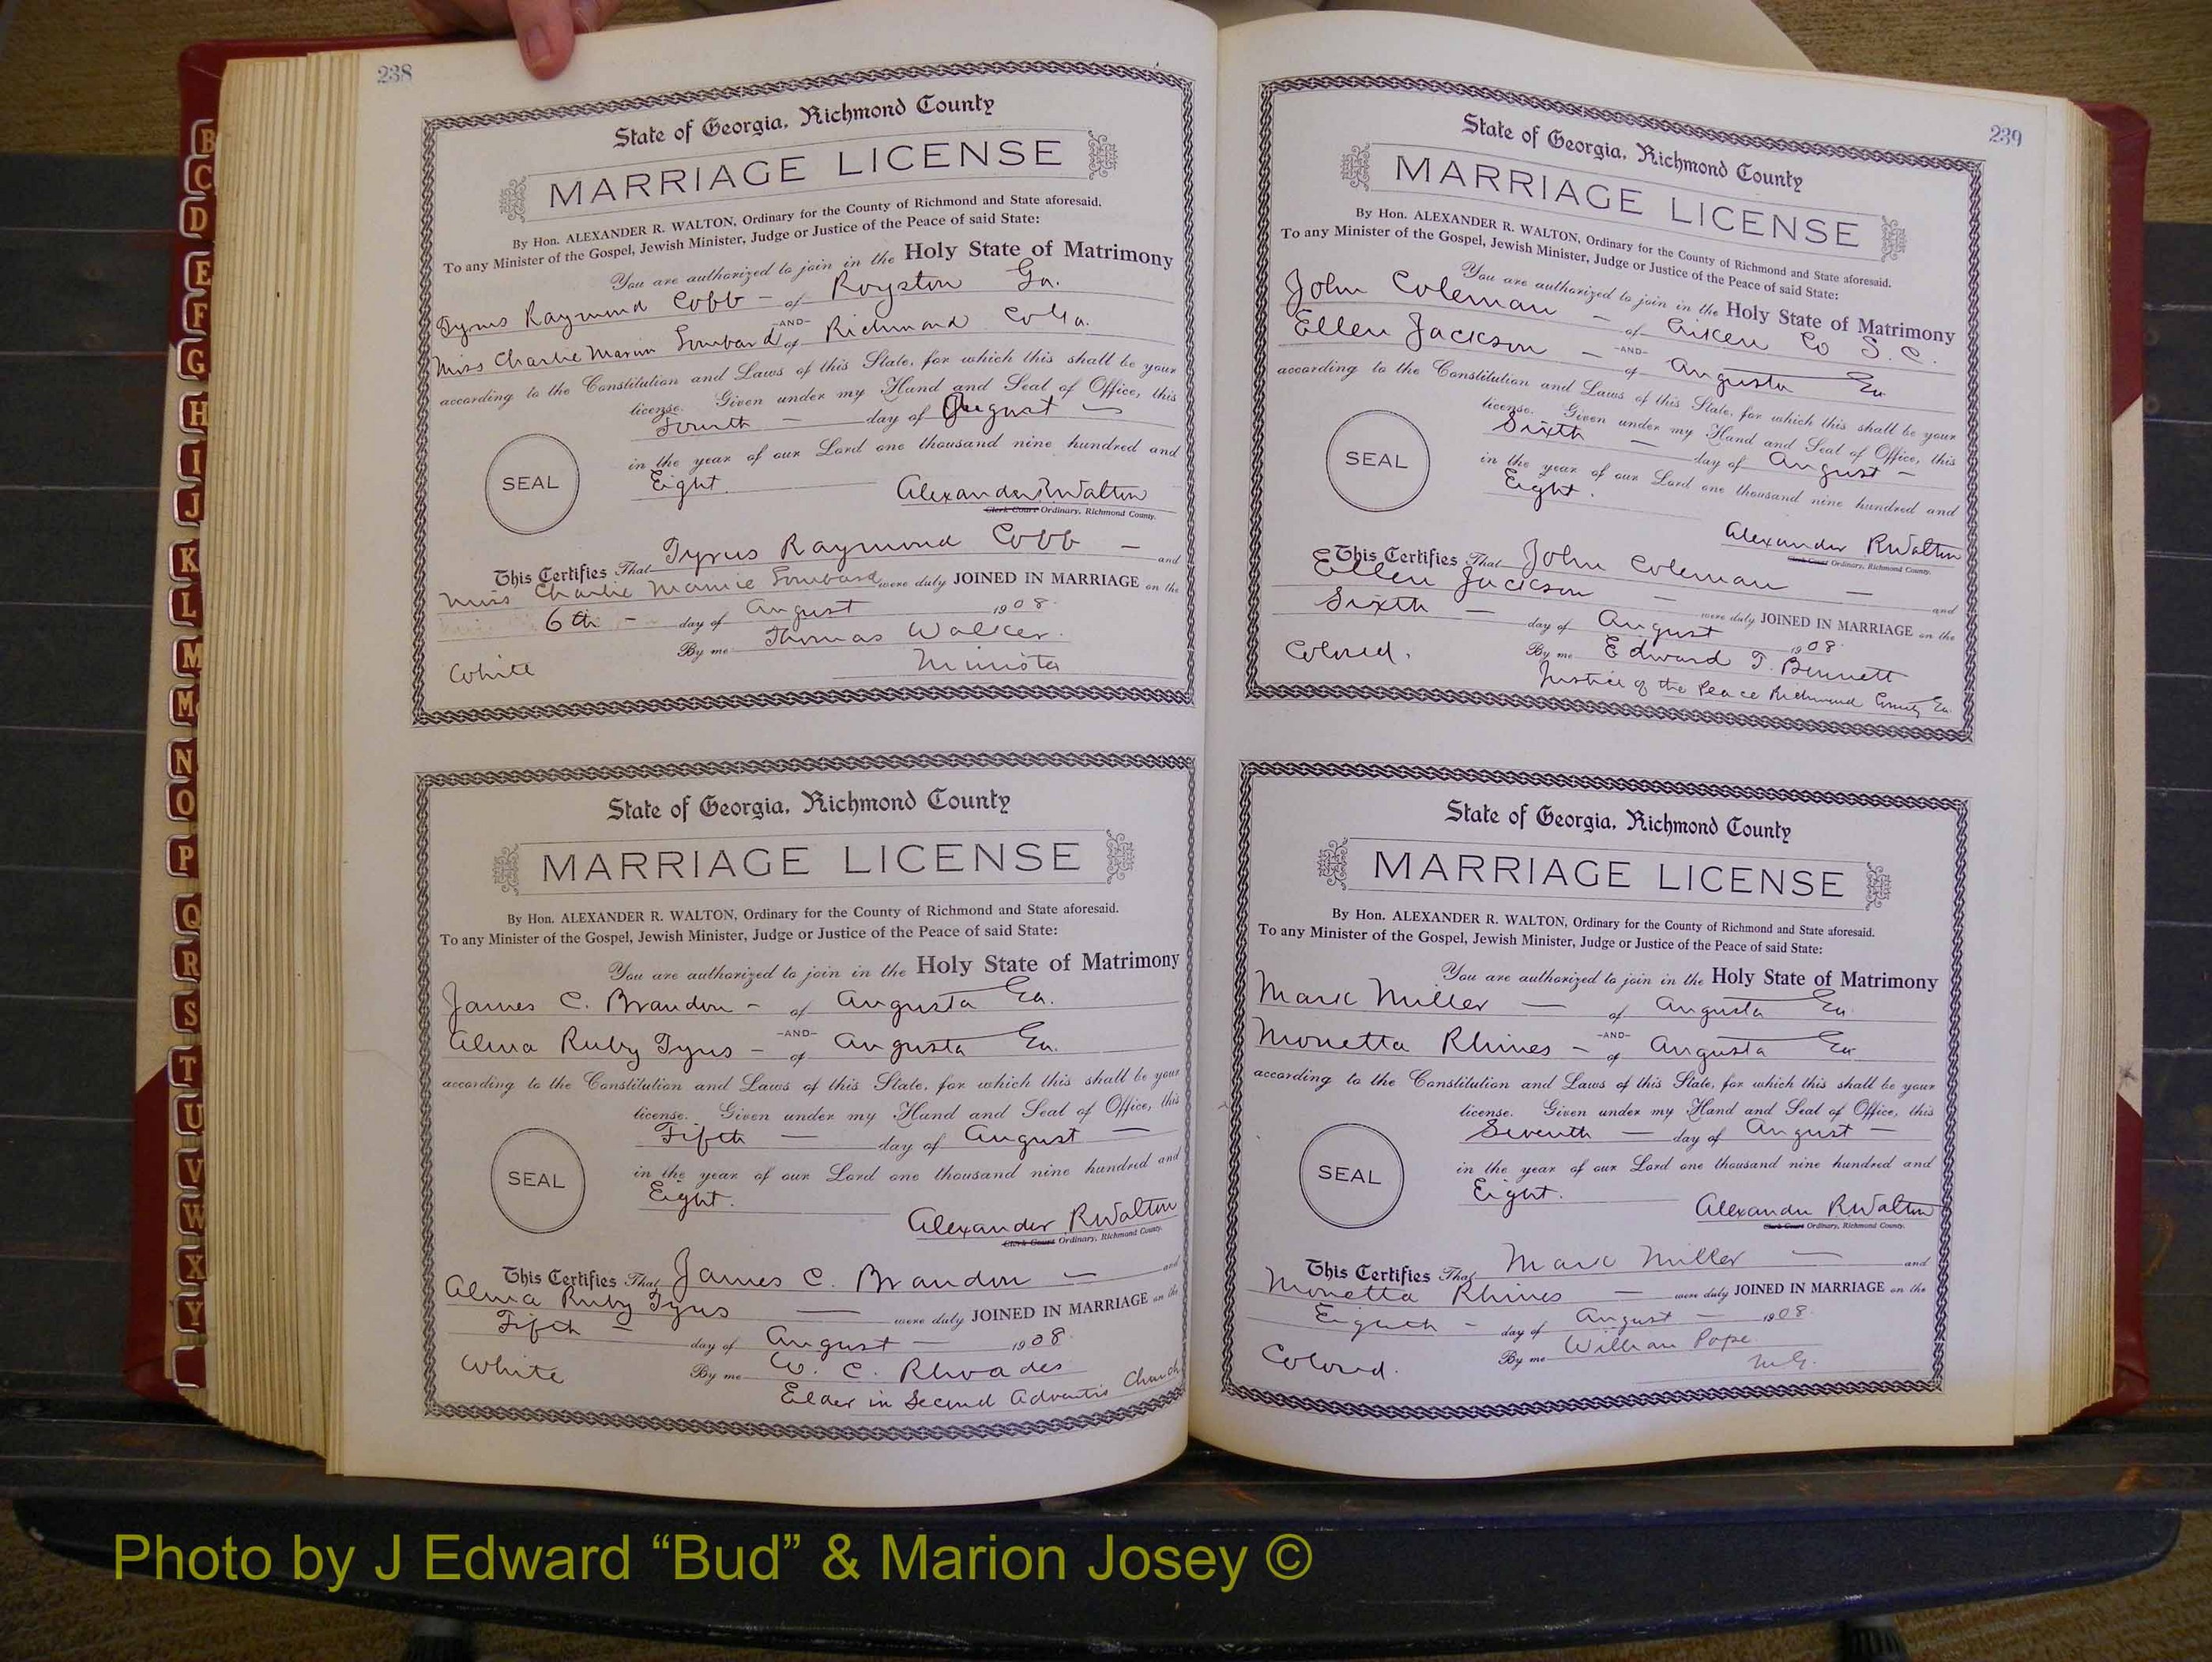 238
State of Georgia, Richmond County
MARRIAGE LICENSE
By Hon. ALEXANDER R. WALTON, Ordinary for the County of Richmond and State aforesaid.
To any Minister of the Gospel, Jewish Minister, Judge or Justice of the Peace of said State:
You are authorized to join in the Holy State of Matrimony
Tyrus Raymond Cobb - of Royston Ga.
-AND-
Miss Charlie Marion Lombard of Richmond Co Ga.
according to the Constitution and Laws of this State, for which this shall be your
license. Given under my Hand and Seal of Office, this
Fourth - day of August -
in the year of our Lord one thousand nine hundred and
SEAL
Eight.
Alexander R Walton
Clerk Court Ordinary, Richmond County.
This Certifies That Tyrus Raymond Cobb - and
Miss Charlie Mamie Lombard were duly JOINED IN MARRIAGE on the
6th - day of August 1908.
By me Thomas Walker.
White Minister
State of Georgia, Richmond County
MARRIAGE LICENSE
By Hon. ALEXANDER R. WALTON, Ordinary for the County of Richmond and State aforesaid.
To any Minister of the Gospel, Jewish Minister, Judge or Justice of the Peace of said State:
You are authorized to join in the Holy State of Matrimony
James C. Brandon - of Augusta Ga.
-AND-
Alma Ruby Tyus - of Augusta Ga.
according to the Constitution and Laws of this State, for which this shall be your
license. Given under my Hand and Seal of Office, this
Fifth - day of August -
in the year of our Lord one thousand nine hundred and
SEAL
Eight.
Alexander R Walton
Clerk Court Ordinary, Richmond County.
This Certifies That James C. Brandon - and
Alma Ruby Tyus - were duly JOINED IN MARRIAGE on the
Fifth - day of August - 1908.
White By me W. C. Rhoades
Elder in Second Adventis Church
239
State of Georgia, Richmond County
MARRIAGE LICENSE
By Hon. ALEXANDER R. WALTON, Ordinary for the County of Richmond and State aforesaid.
To any Minister of the Gospel, Jewish Minister, Judge or Justice of the Peace of said State:
You are authorized to join in the Holy State of Matrimony
John Coleman - of Aiken Co S. C.
-AND-
Ellen Jackson - of Augusta Ga
according to the Constitution and Laws of this State, for which this shall be your
license. Given under my Hand and Seal of Office, this
Sixth - day of August -
in the year of our Lord one thousand nine hundred and
SEAL
Eight.
Alexander R Walton
Clerk Court Ordinary, Richmond County.
This Certifies That John Coleman - and
Ellen Jackson - were duly JOINED IN MARRIAGE on the
Sixth - day of August 1908.
Colored. By me Edward T. Bennett
Justice of the Peace Richmond County Ga.
State of Georgia, Richmond County
MARRIAGE LICENSE
By Hon. ALEXANDER R. WALTON, Ordinary for the County of Richmond and State aforesaid.
To any Minister of the Gospel, Jewish Minister, Judge or Justice of the Peace of said State:
You are authorized to join in the Holy State of Matrimony
Mark Miller - of Augusta Ga.
-AND-
Monetta Rhines - of Augusta Ga
according to the Constitution and Laws of this State, for which this shall be your
license. Given under my Hand and Seal of Office, this
Seventh - day of August -
in the year of our Lord one thousand nine hundred and
SEAL
Eight.
Alexander R Walton
Clerk Court Ordinary, Richmond County.
This Certifies That Mark Miller - and
Monetta Rhines - were duly JOINED IN MARRIAGE on the
Eighth - day of August - 1908.
Colored. By me William Pope
M.G.
B
C
D
E
F
G
H
I
J
K
L
M
Mc
N
O
P
Q
R
S
T
U
V
W
X
Y
Photo by J Edward “Bud” & Marion Josey ©